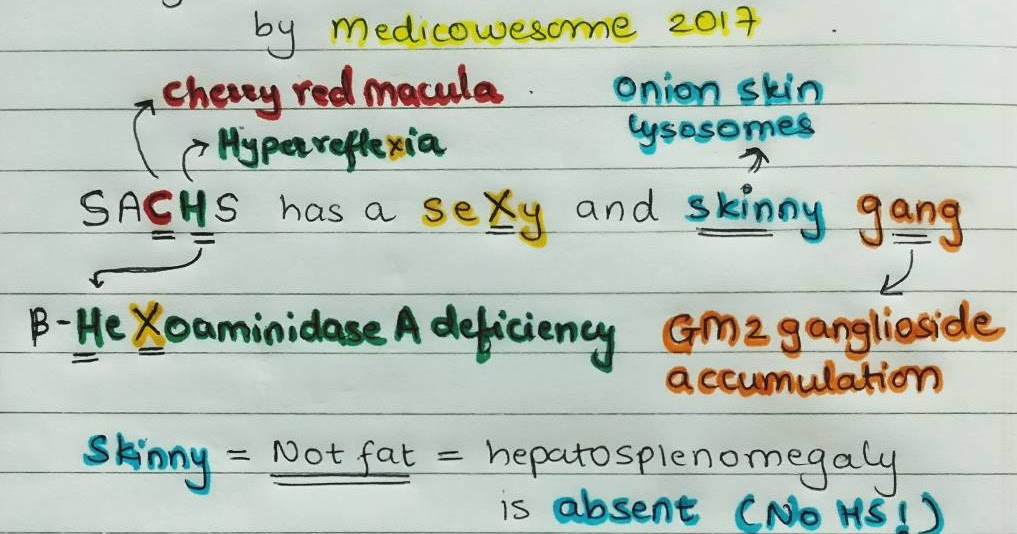 by Medicowesome 2017
Cherry red macula
Onion skin
lysosomes
Hyperreflexia
SACHS has a seXy and skinny gang
β-HeXoaminidase A deficiency
GM2 ganglioside
accumulation
Skinny = Not fat = hepatosplenomegaly
is absent (No HS!)